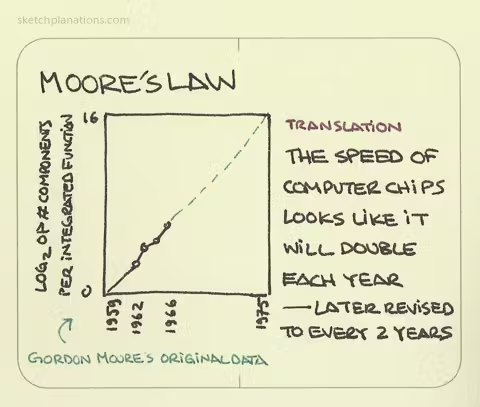 sketchplanations.com
MOORE'S LAW
LOG2 OP # COMPONENTS
PER INTEGRATED FUNCTION
16
0
1959
1962
1966
1975
GORDON MOORE'S ORIGINAL DATA
TRANSLATION
THE SPEED OF
COMPUTER CHIPS
LOOKS LIKE IT
WILL DOUBLE
EACH YEAR
— LATER REVISED
TO EVERY 2 YEARS